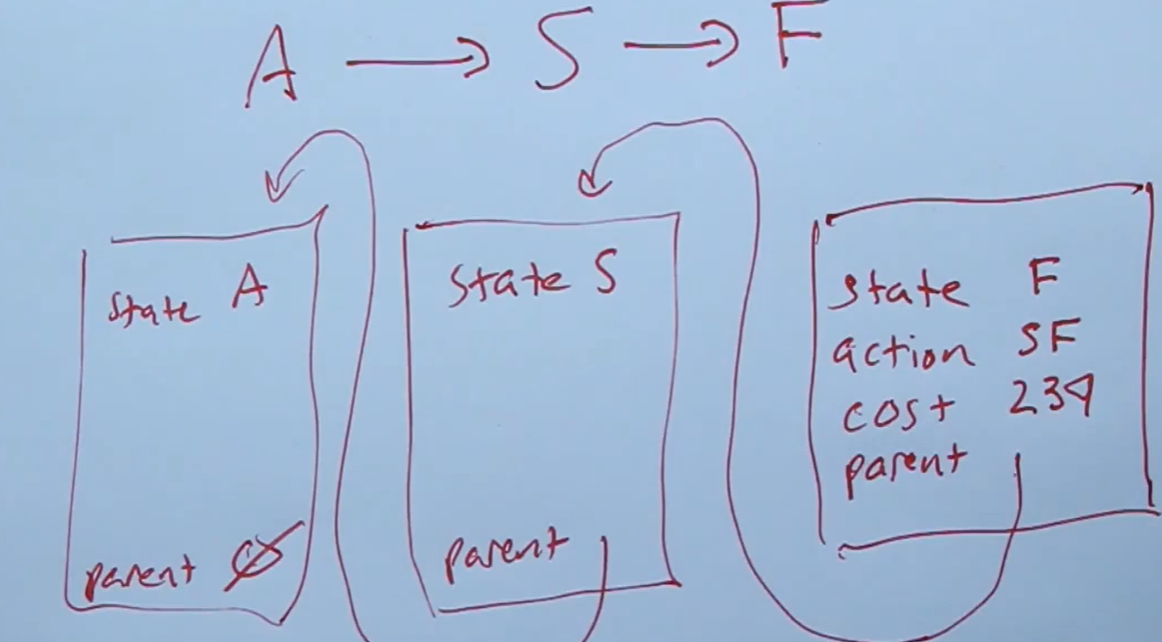 A → S → F
state A
parent ∅
state S
parent
state F
action SF
cost 234
parent